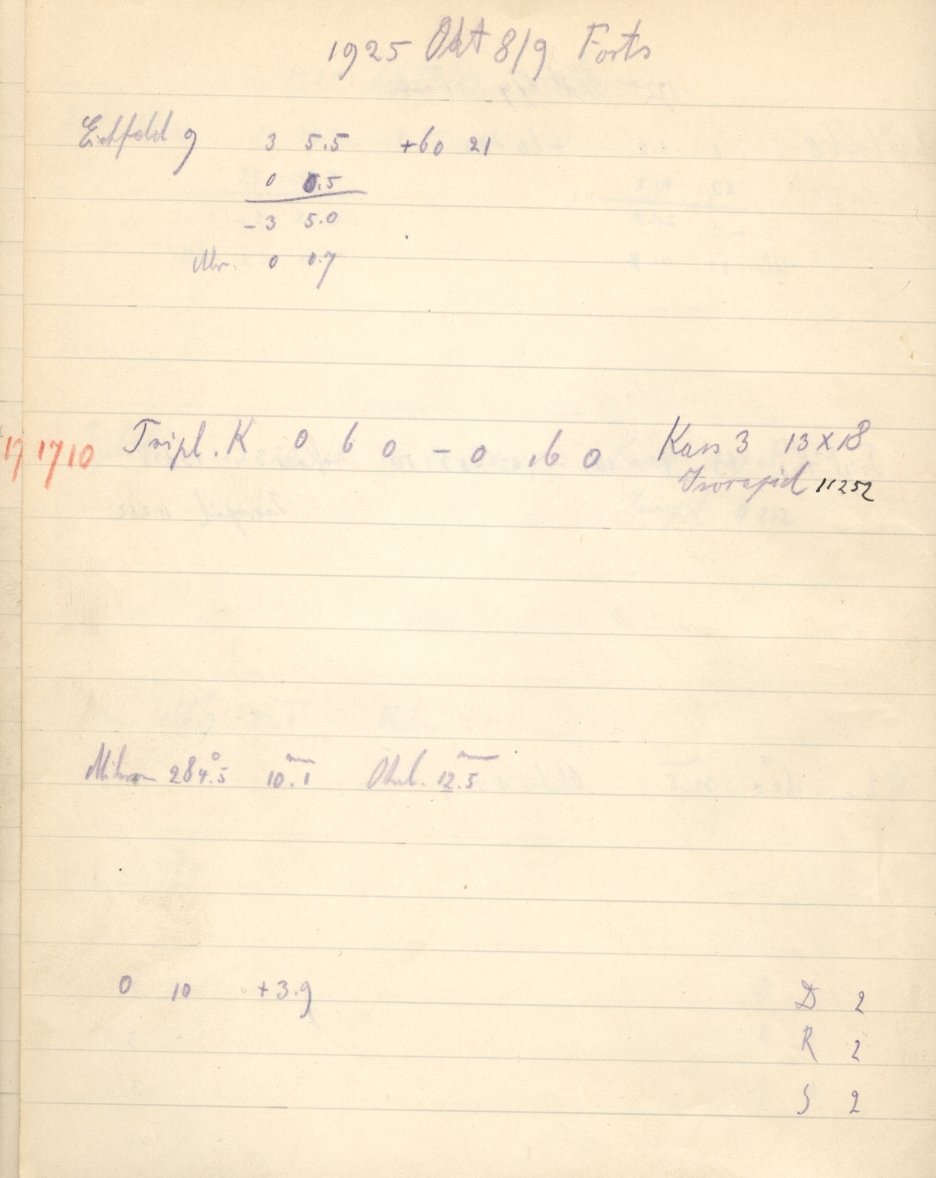 1925 Okt 8/9 Forts
Eichfeld 9 3 5.5 +60 21
0 0.5
-3 5.0
Uhr. 0 0.7
1710 Tripl. K 0 6 0 - 0 16 0 Kass 3 13x18
Isorapid 11252
Mikrom 284.5° 10.1 Okul. 12.5
0 10 +3.9 D 2
R 2
S 2